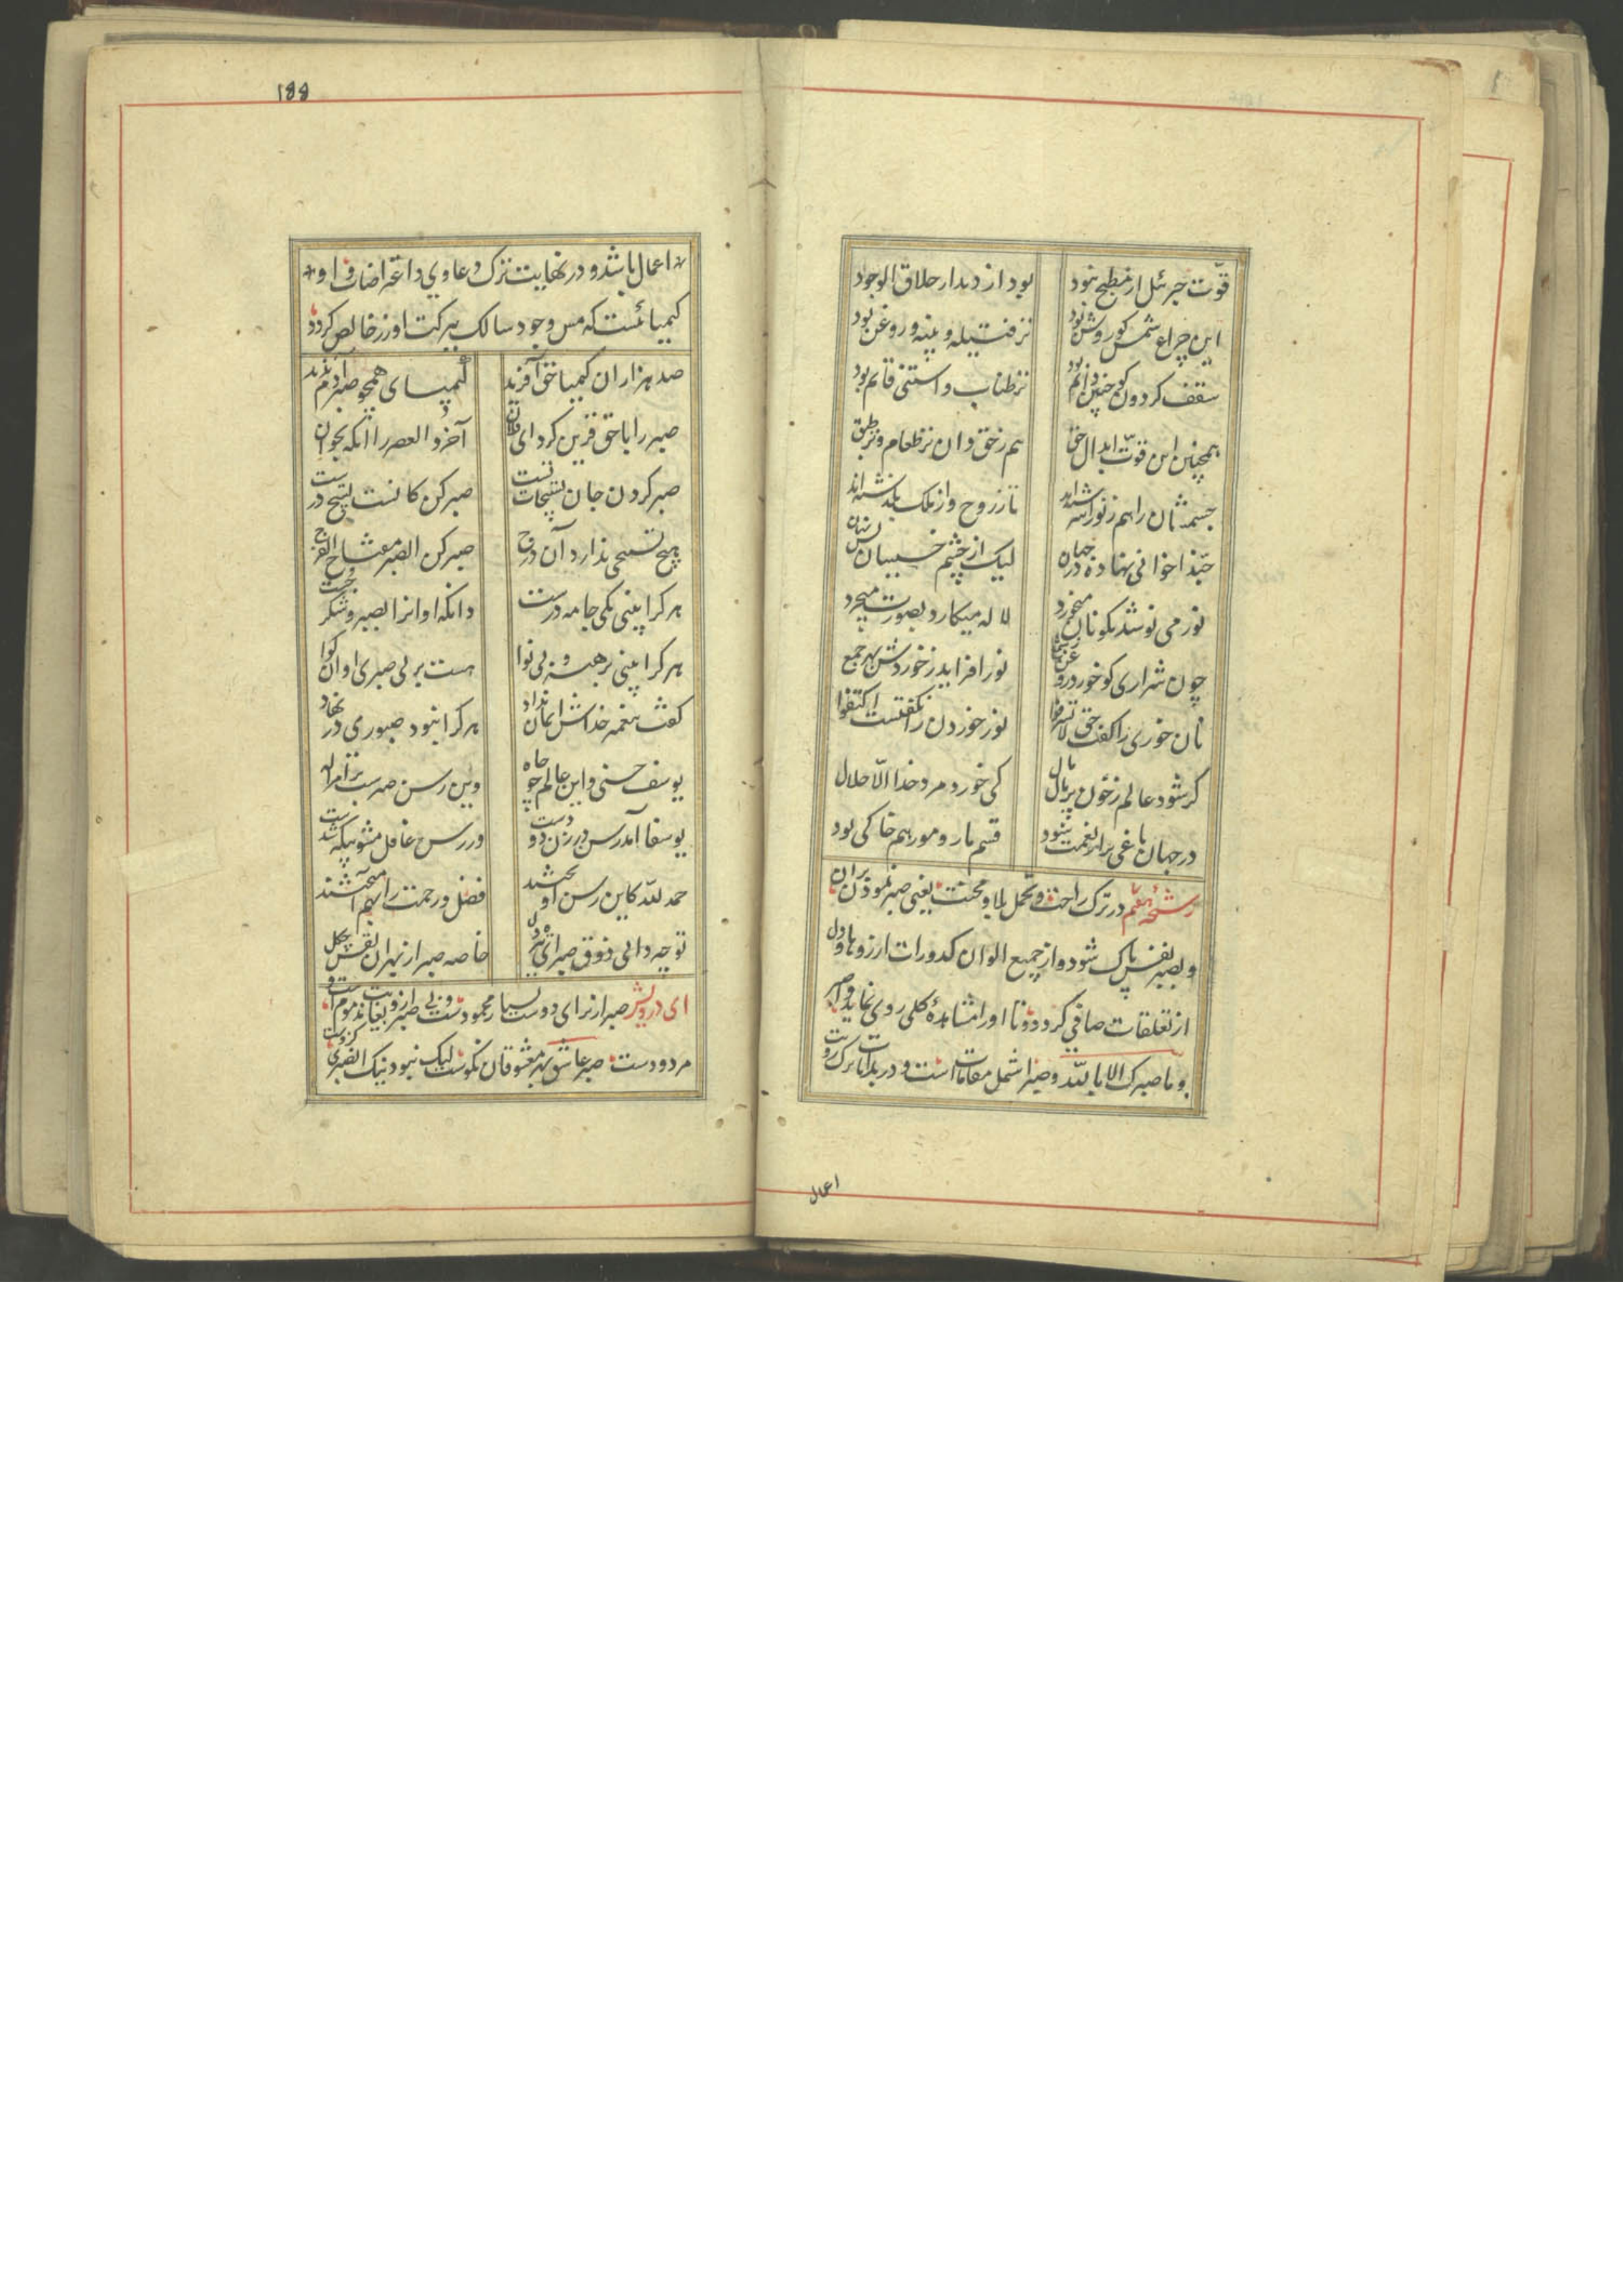 قوّت جبرئیل از مطبخ نبود بود از دیدار خلاق الوجود
این چراغ شمس کو روشن بود نز فتیله و پنبه و روغن بود
سقف کردون کو چنین دایم بود نز طناب و استنی قایم بود
همچنین این قوّت ابدال حق هم ز حق دان نز طعام و نز طبق
جسمشان را هم ز نور اسرشته‌اند تا ز روح و از ملک بگذشته‌اند
حبّذا خوانی نهاده در جهان لیک از چشم خسیسان بس نهان
نور می نوشد مگو نان میخورد لاله میکارد بصورت میچرد
چون شراری کو خورد روغن ز شمع نور افزاید ز خوردش بهر جمع
نان خوری را گفت حق لا تسرفوا نور خوردن را نکفتست اکتفوا
کر شود عالم ز خون پر مال مال کی خورد مرد خدا الّا حلال
در جهان باغی پر از نعمت شود قسم مار و مور هم خاکی بود
رشحهٔ هفتم در ترک راحت و تحمل بلا و محنت یعنی صبر نمودن بران
و بصبر نفس پاک شود و از جمیع الوان کدورات ارزوها و دل
از تعلقات صافی کردد و تا او را مشاهدهٔ کلی روی نماید و اصبر
و ما صبرک الا بالله و صبر اشمل مقامات است و در بدایات ترک رویت
اعمال
۱۵۵
اعمال باشد و در نهایت ترک دعاوی و اعتراضات و او
کیمیائست که مس وجود سالک ببرکت او زر خالص کردد
صد هزاران کیمیا حق آفرید کیمیای همچو صبر آدم ندید
صبر را با حق قرین کرد ای فلان آخر و العصر را آنکه بخوان
صبر کردن جان تسبیحات تست صبر کن کانست تسبیح درست
هیچ تسبیحی ندارد آن درج صبر کن الصبر مفتاح الفرج
هر کرا بینی یکی جامه درست دانکه او انرا بصبر و شکر جست
هر کرا بینی برهنه و بی نوا هست بر بی صبری او آن کوا
گفت پیغمبر خداش ایمان نداد هر کرا نبود صبوری در نهاد
یوسف حسنی و این عالم چو چاه وین رسن صبرست بر امر اله
یوسفا آمد رسن در زن دو دست ور رسن غافل مشو بیکه شدست
حمد لله کاین رسن او بخشند فضل و رحمت را بهم آمیختند
تو چه دانی ذوق صبر ای شیر دل خاصه صبر از بهر ان نقش چکل
ای درویش صبر از برای دوست بسیار محمود ست و بی صبر از و بغایت مذموم است و
مردودست صبر عاشق بهر معشوقان نکوست لیک نبود نیک الصبری کزوست